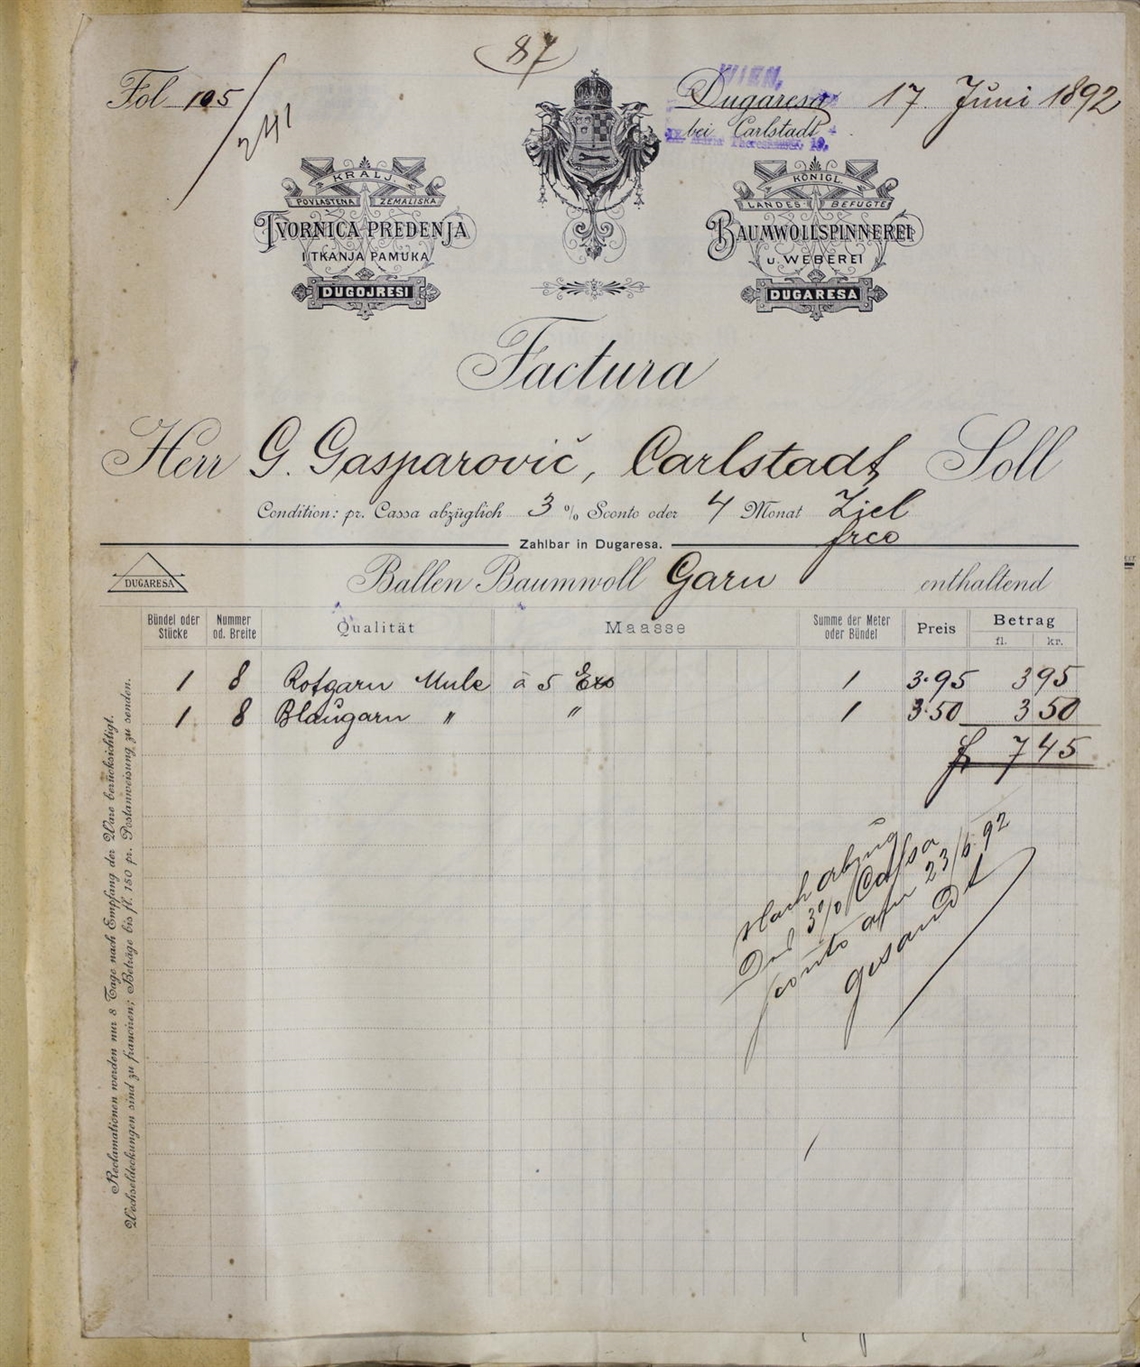 87
Fol 105
241
WIEN,
Dugaresa 17. Juni 1892
bei Carlstadt
IX. Maria Theresienstr. 19.
KRALJ.
POVLASTENA ZEMALJSKA
TVORNICA PREDENJA
I TKANJA PAMUKA
DUGOJRESI
KÖNIGL.
LANDES- BEFUGTE
BAUMWOLLSPINNEREI
u. WEBEREI
DUGARESA
Factura
Herr G. Gasparovič, Carlstadt Soll
Condition: pr. Cassa abzüglich 3 % Sconto oder 4 Monat Ziel
frco
Zahlbar in Dugaresa.
DUGARESA
Ballen Baumwoll Garn enthaltend
Bündel oder Stücke Nummer od. Breite Qualität Maasse Summe der Meter oder Bündel Preis Betrag
fl. kr.
1 8 Rotgarn Mule à 5 1 3.95 3 95
1 8 Blaugarn " " 1 3.50 3 50
fl 7 45
Nach abzug
3% Cassa
sconto am 23/6 92
gesandt
Reclamationen werden nur 8 Tage nach Empfang der Ware berücksichtigt.
Wechseldeckungen sind zu franciren; Beträge bis fl. 150 pr. Postanweisung zu senden.